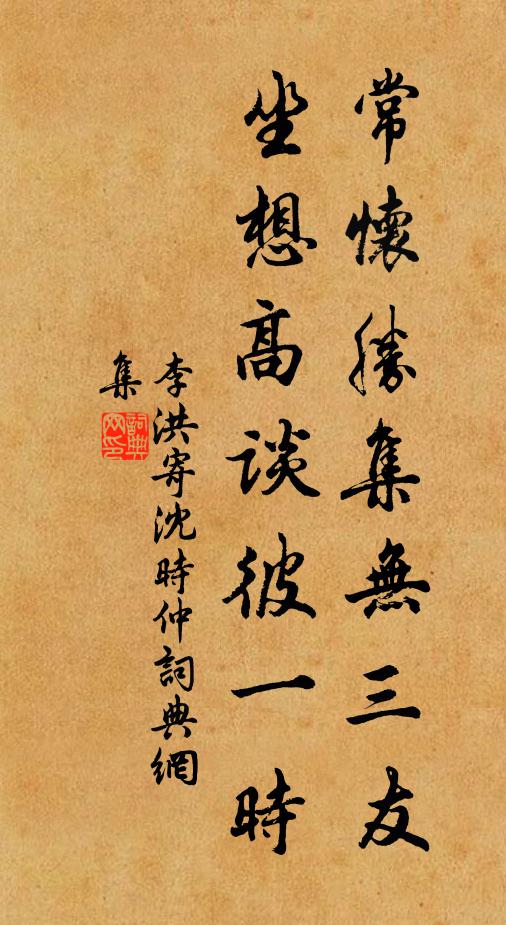 常懷勝集無三友
坐想高談彼一時
李洪寄沈時仲詞典網
集
詞典網印